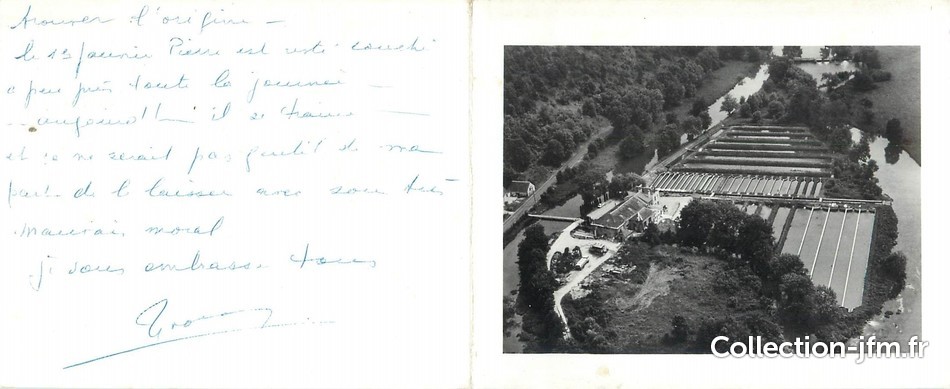 trouver l'origine –
le 13 janvier Pierre est resté couché
à peu près toute la journée –
aujourd'hui il se traine –
et ce ne serait pas gentil de ma
part de le laisser avec son très
mauvais moral
je vous embrasse tous
Collection-jfm.fr